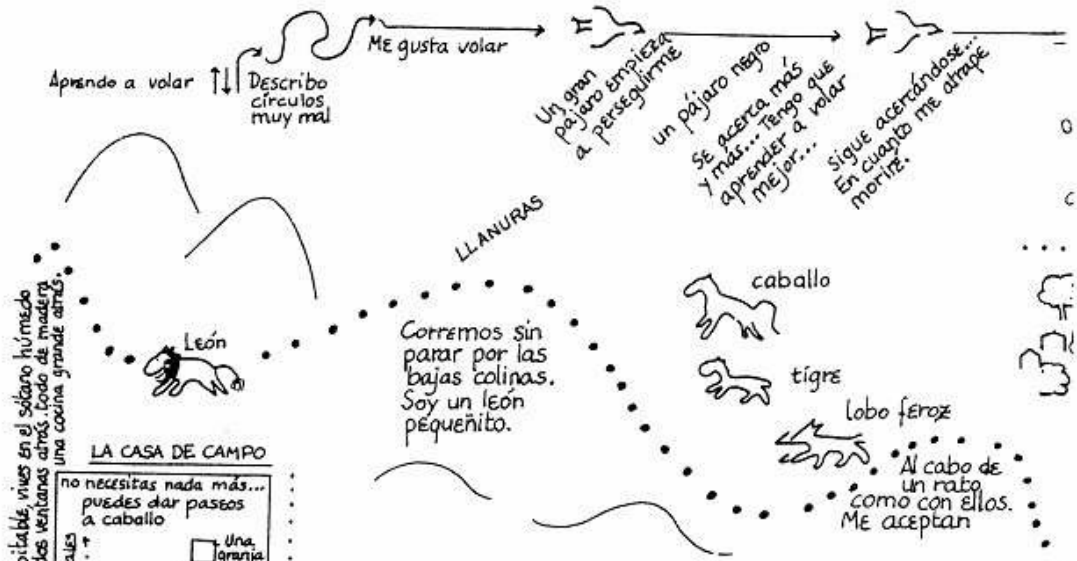 Aprendo a volar
Describo
círculos
muy mal
Me gusta volar
Un gran
pájaro empieza
a perseguirme
un pájaro negro
Se acerca más
y más... Tengo que
aprender a volar
mejor...
Sigue acercándose...
En cuanto me atrape
moriré.
LLANURAS
León
Corremos sin
parar por las
bajas colinas.
Soy un león
pequeñito.
caballo
tigre
lobo feroz
Al cabo de
un rato
como con ellos.
Me aceptan
vives en el sótano húmedo
ventanas atrás. todo de madera
una cocina grande atrás.
LA CASA DE CAMPO
no necesitas nada más...
puedes dar paseos
a caballo
Una
granja